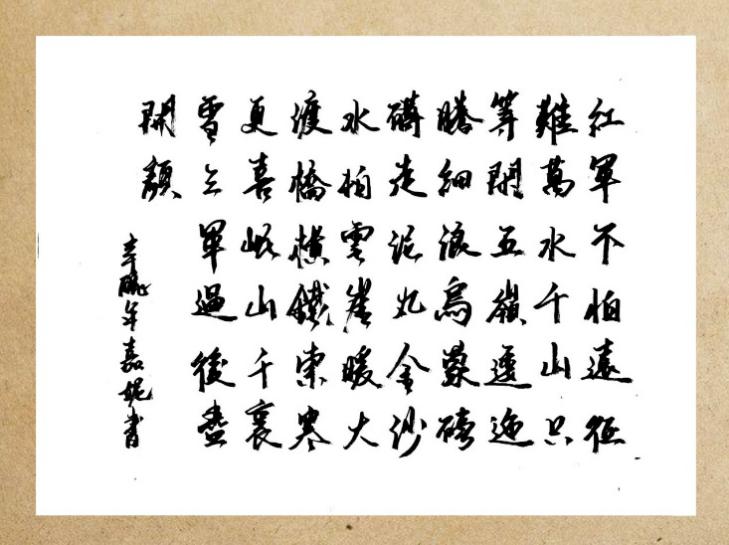 紅軍不怕遠征
難萬水千山只
等閒五嶺逶迤
騰細浪烏蒙磅
礴走泥丸金沙
水拍雲崖暖大
渡橋橫鐵索寒
更喜岷山千裏
雪三軍過後盡
開顏
辛卯年嘉妮書